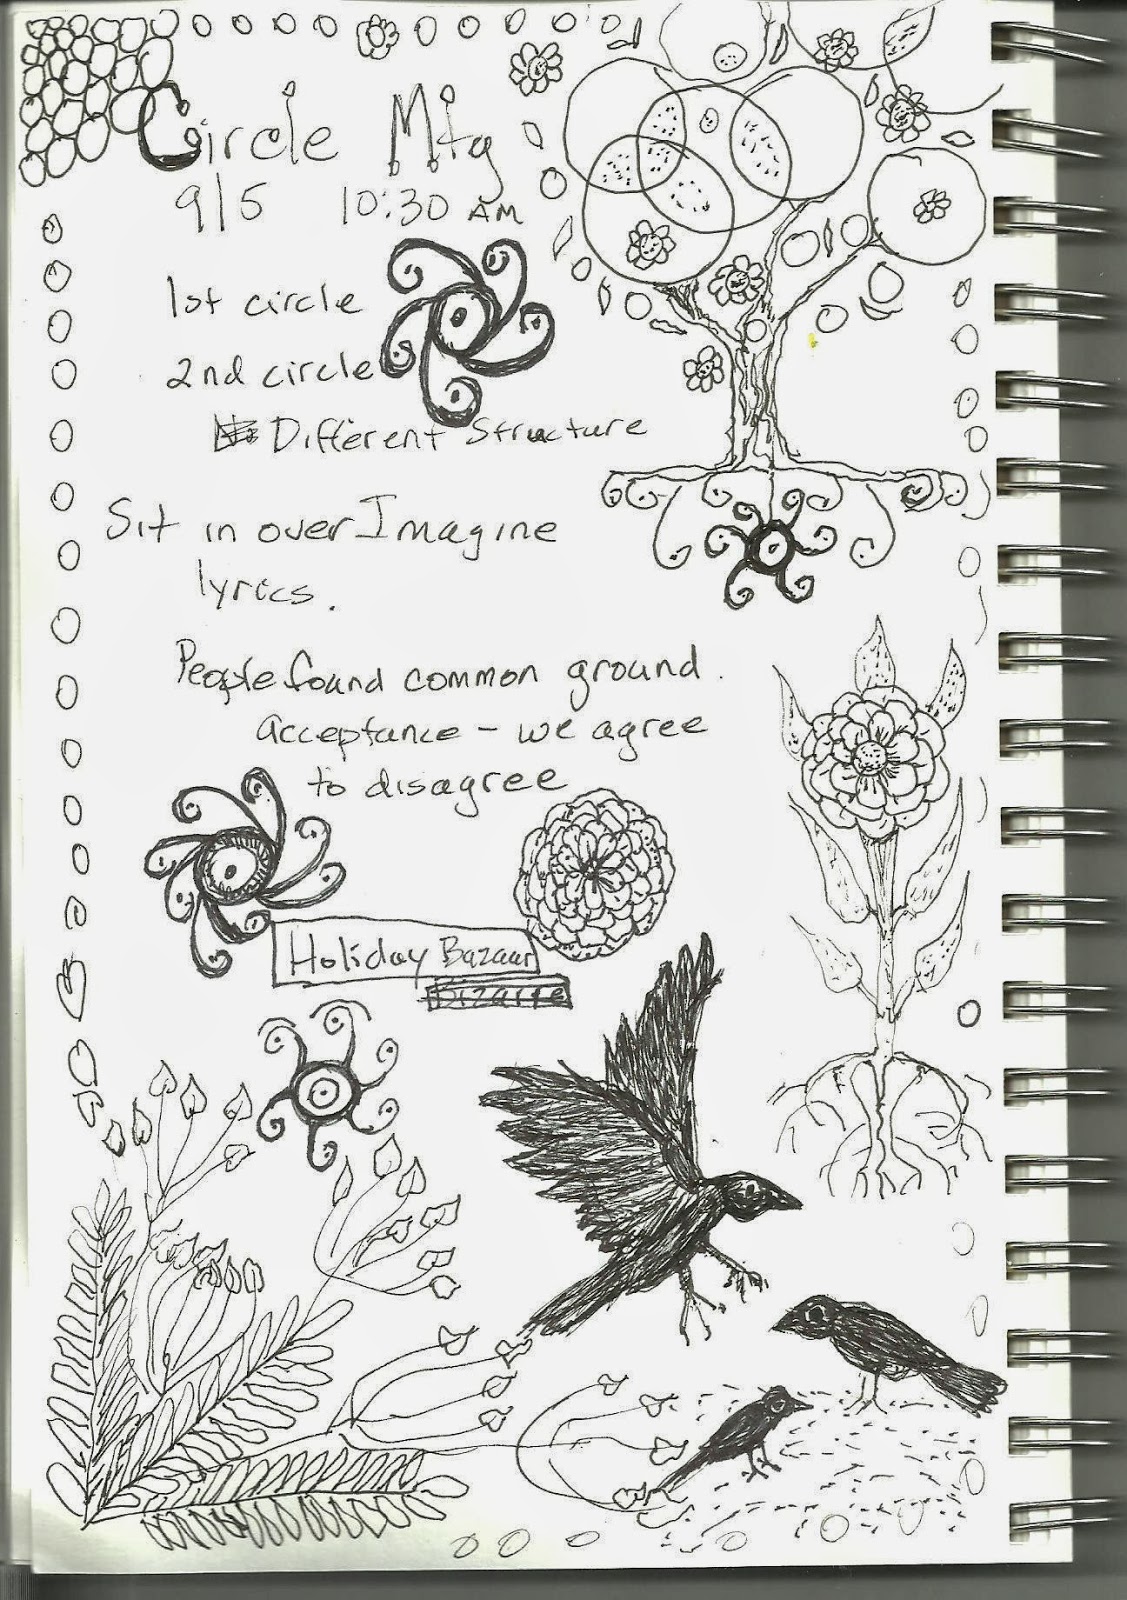 Circle Mtg
9/5 10:30 AM
1st circle
2nd circle
Different Structure
Sit in over Imagine
lyrics.
People found common ground.
acceptance - we agree
to disagree
Holiday Bazaar
Bizarre